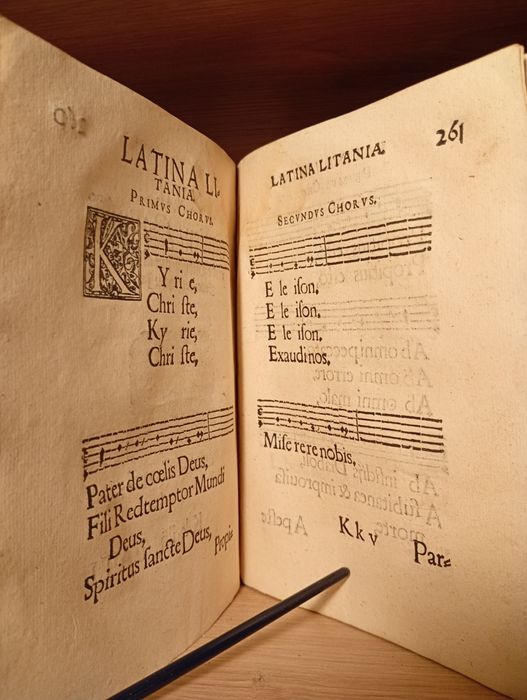 LATINA LI-
TANIA.
PRIMVS CHORVS.
K
Y ri e,
Chri ſte,
Ky rie,
Chri ſte,
Pater de cœlis Deus,
Fili Redtemptor Mundi
Deus,
Spiritus ſancte Deus,
Propi-
261
LATINA LITANIA.
SECVNDVS CHORVS.
E le iſon,
E le iſon,
E le iſon,
Exaudinos,
Miſe rere nobis,
K k v
Par-